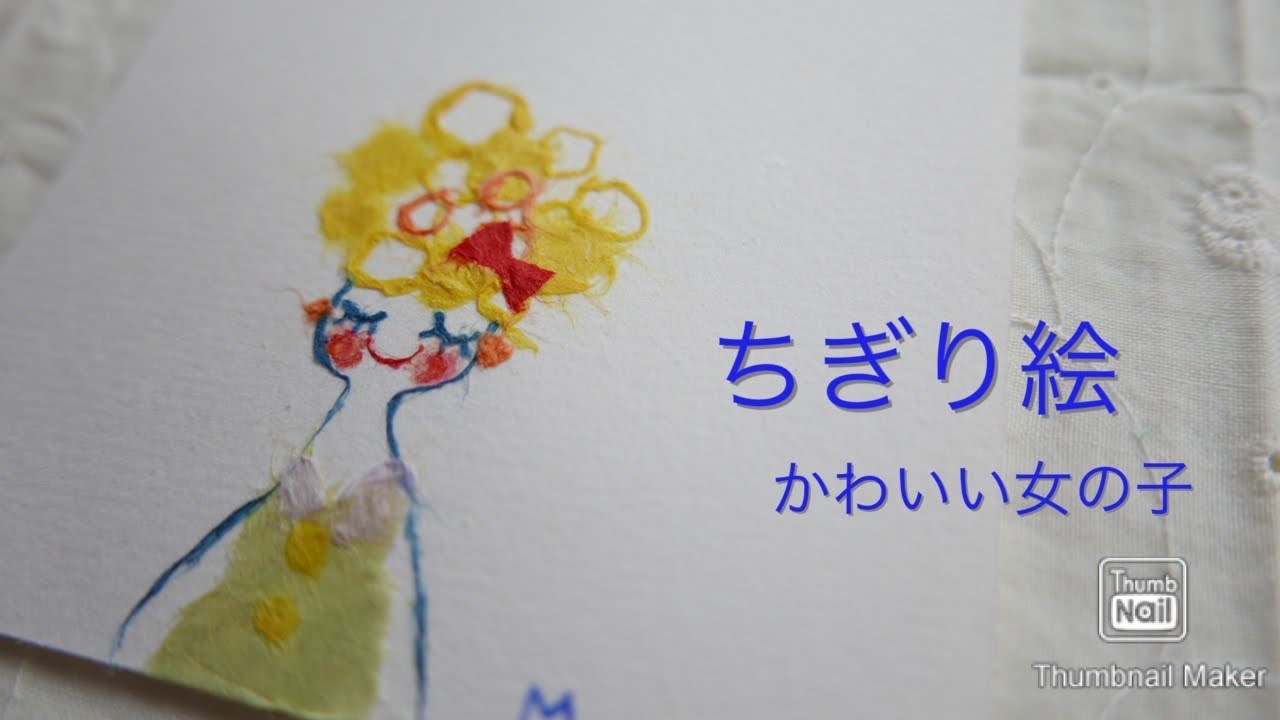 ちぎり絵
かわいい女の子
Thumb
Nail
Thumbnail Maker
M